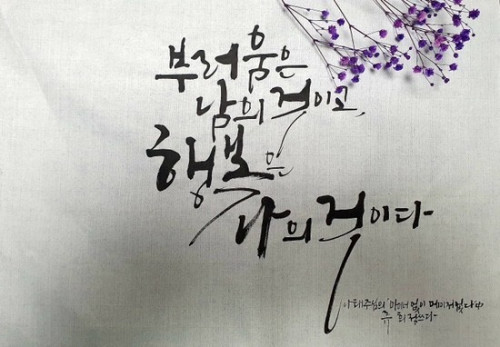 부러움은
남의 것이고,
행복은
나의 것이다